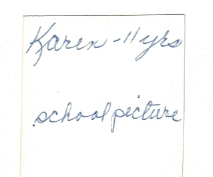 Karen - 11 yrs
school picture